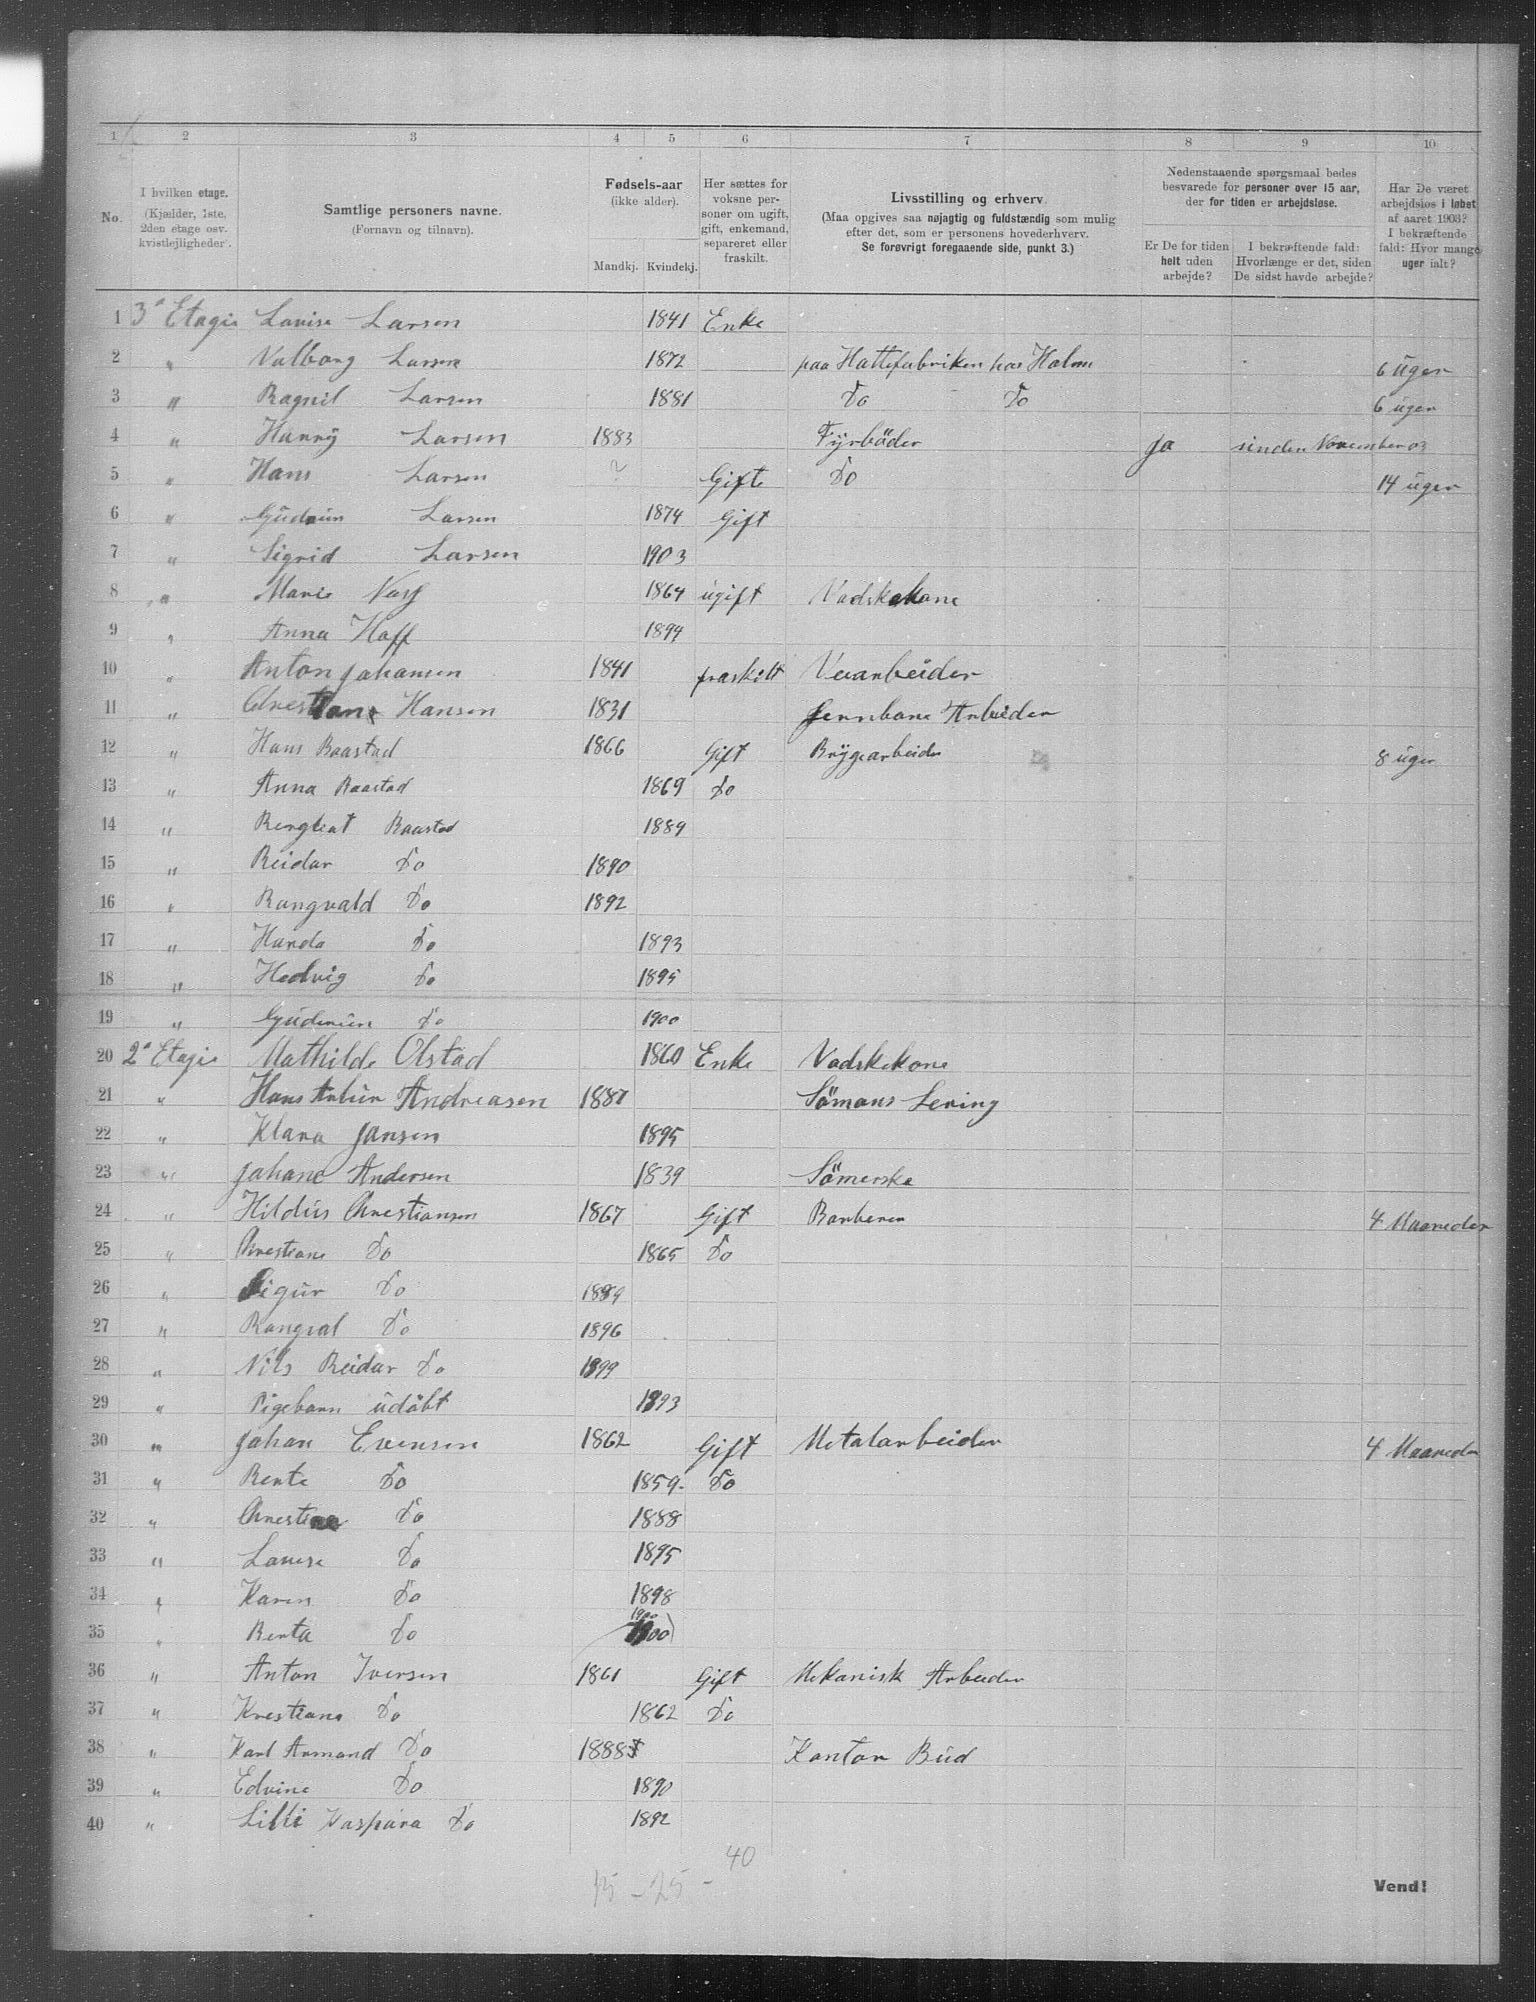 1 2 3 4 5 6 7 8 9 10
No.
I hvilken etage.
(Kjælder, 1ste,
2den etage osv.
kvistlejligheder).
Samtlige personers navne.
(Fornavn og tilnavn).
Fødsels-aar
(ikke alder).
Mandkj. Kvindekj.
Her sættes for
voksne per-
soner om ugift,
gift, enkemand,
separeret eller
fraskilt.
Livsstilling og erhverv.
(Maa opgives saa nøjagtig og fuldstændig som mulig
efter det, som er personens hovederhverv.
Se forøvrigt foregaaende side, punkt 3.)
Nedenstaaende spørgsmaal bedes
besvarede for personer over 15 aar,
der for tiden er arbejdsløse.
Er De for tiden
helt uden
arbejde?
I bekræftende fald:
Hvorlænge er det, siden
De sidst havde arbejde?
Har De været
arbejdsløs i løbet
af aaret 1903?
I bekræftende
fald: Hvor mange
uger ialt?
1 3e Etagie Lovise Larsen 1841 Enke
2 " Valborg Larsen 1872 paa Hattefabriken hos Holm 6 uger
3 " Ragnil Larsen 1881 Do Do 6 uger
4 " Harry Larsen 1883 Fyrböder ja sinden November 03
5 " Hans Larsen ? Gifte Do 14 uger
6 " Gudrun Larsen 1874 Gift
7 " Sigrid Larsen 1903
8 " Marie 1864 ugift Vadskekone
9 " Anna Hoff 1894
10 " Anton Johansen 1841 fraskilt Veiarbeider
11 " Hansen 1831 Jernbane Arbeider
12 " Hans Baastad 1866 Gift Brygearbeider 8 uger
13 " Anna Baastad 1869 Do
14 " Baastad 1889
15 " Reidar Do 1890
16 " Rangvald Do 1892
17 " Do 1893
18 " Hedvig Do 1895
19 " Do 1900
20 2e Etagie Mathilde Olstad 1860 Enke Vadskekone
21 " Hans Andreasen 1887 Sömans Lering
22 " Klara Jansen 1895
23 " Johane Andersen 1839 Sömerske
24 " Hildus Chrestiansen 1867 Gift Barberer 4 Maaneder
25 " Chrestiane Do 1865 Do
26 " Sigur Do 1889
27 " Rangval Do 1896
28 " Nils Reidar Do 1899
29 " Pigebarn udöbt 1893
30 " Johan Evensen 1862 Gift Metalarbeider 4 Maaneder
31 " Berte Do 1859 Do
32 " Do 1888
33 " Lovise Do 1895
34 " Karen Do 1898
35 " Berta Do 1900
36 " Anton Iversen 1861 Gift Mekanisk Arbeider
37 " Krestiane Do 1862 Do
38 " Karl Armand Do 1888 Kontor Bud
39 " Edvine Do 1890
40 " Lilli Kaspara Do 1892
40
15 - 25 -
Vend!